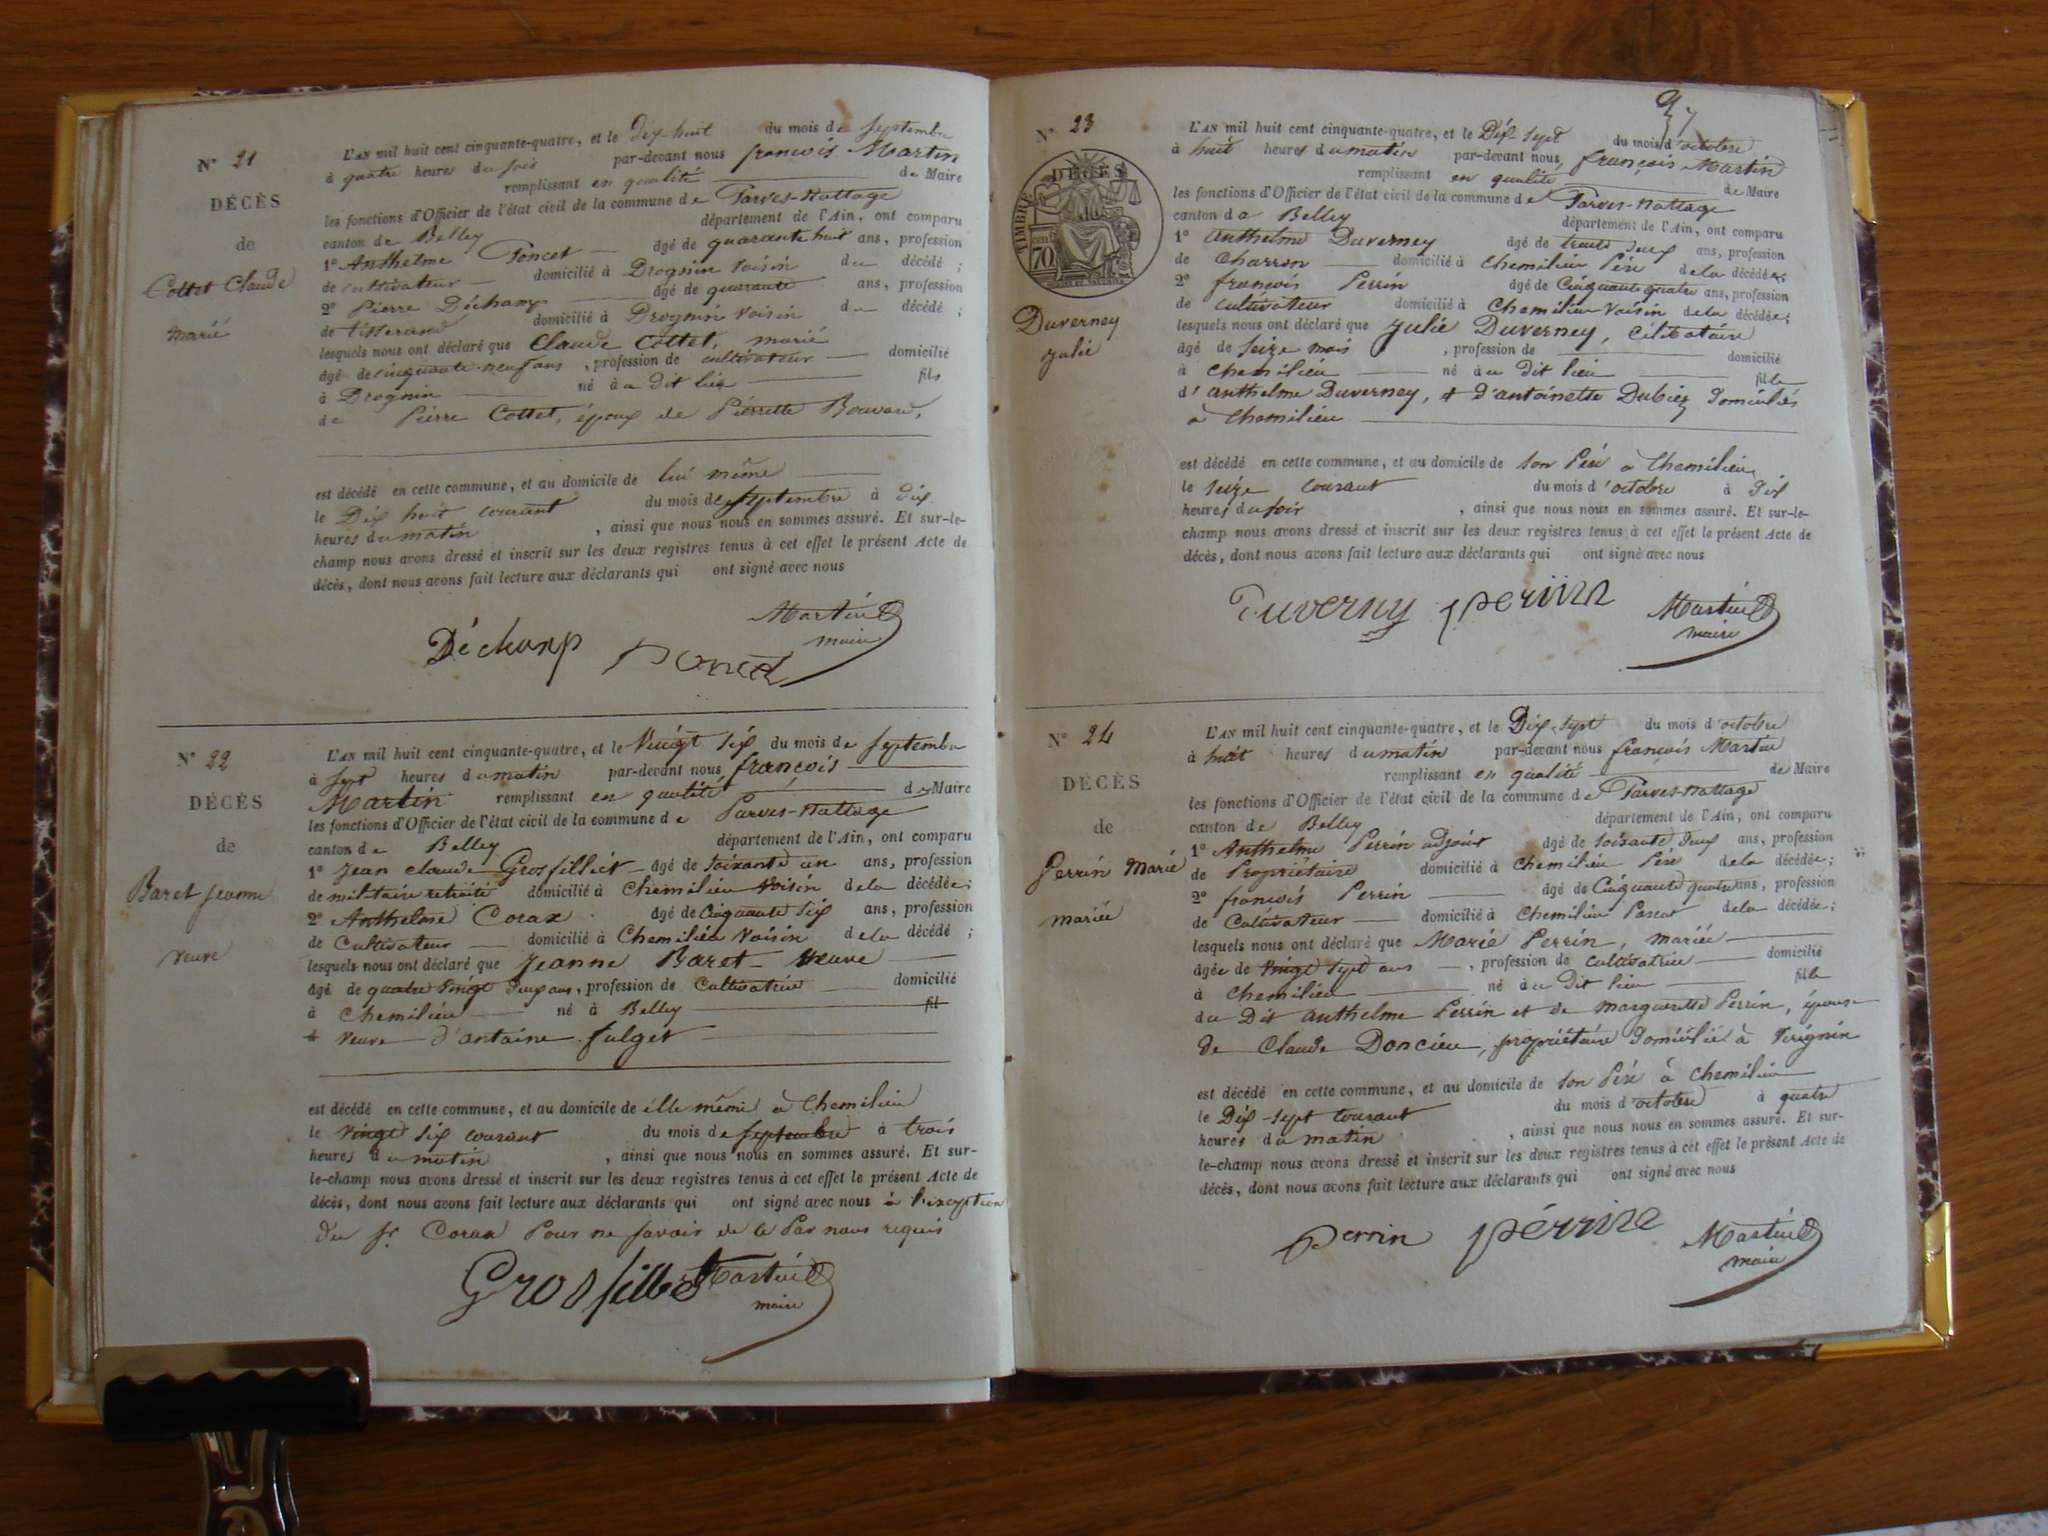 N° 21
DÉCÈS
de
Cottet Claude
marié
L'AN mil huit cent cinquante-quatre, et le Dix huit du mois de Septembre
à quatre heures du soir par-devant nous françois Martin
remplissant en qualité de Maire
les fonctions d'Officier de l'état civil de la commune de Parves-Nattage
canton de Belley département de l'Ain, ont comparu
1° Anthelme Poncet âgé de quarante huit ans, profession
de cultivateur domicilié à Drognin voisin du décédé ;
2° Pierre Déchamp âgé de quarante ans, profession
de tisserand domicilié à Drognin voisin du décédé ;
lesquels nous ont déclaré que Claude Cottet, marié
âgé de cinquante-neuf ans, profession de cultivateur domicilié
à Drognin né à u dit lieu fils
de Pierre Cottet, époux de Pierrette
est décédé en cette commune, et au domicile de lui même
le Dix huit courant du mois de septembre à dix
heures du matin, ainsi que nous nous en sommes assuré. Et sur-le-
champ nous avons dressé et inscrit sur les deux registres tenus à cet effet le présent Acte de
décès, dont nous avons fait lecture aux déclarants qui ont signé avec nous
Martin
maire
Déchamp Poncet
N° 22
DÉCÈS
de
Baret Jeanne
veuve
L'AN mil huit cent cinquante-quatre, et le Vingt six du mois de Septembre
à sept heures du matin par-devant nous françois
Martin remplissant en qualité de Maire
les fonctions d'Officier de l'état civil de la commune de Parves-Nattage
canton de Belley département de l'Ain, ont comparu
1° Jean claude Grosfillet âgé de soixante un ans, profession
de militaire retraité domicilié à Chemilieu voisin de la décédée ;
2° Anthelme Corax âgé de Cinquante six ans, profession
de Cultivateur domicilié à Chemilieu voisin de la décédé ;
lesquels nous ont déclaré que Jeanne Baret veuve
âgé de quatre vingt deux ans, profession de Cultivatrice domicilié
à Chemilieu né à Belley fil
+ veuve d'antoine fulget
est décédé en cette commune, et au domicile de elle même à Chemilieu
le vingt six courant du mois de septembre à trois
heures du matin, ainsi que nous nous en sommes assuré. Et sur-
le-champ nous avons dressé et inscrit sur les deux registres tenus à cet effet le présent Acte de
décès, dont nous avons fait lecture aux déclarants qui ont signé avec nous à l'exception
du Sr Corax Pour ne savoir de ce Par nous requis
Grosfillet Martin
maire
37
N° 23
DÉCÈS
TIMBRE
70
Duverney
Julie
L'AN mil huit cent cinquante-quatre, et le Dix-sept du mois d'octobre
à huit heures du matin par-devant nous, françois Martin
remplissant en qualité de Maire
les fonctions d'Officier de l'état civil de la commune de Parves-Nattage
canton de Belley département de l'Ain, ont comparu
1° Anthelme Duverney âgé de trente deux ans, profession
de Charron domicilié à Chemilieu Père de la décédée ;
2° françois Perrin âgé de Cinquante quatre ans, profession
de cultivateur domicilié à Chemilieu voisin de la décédée ;
lesquels nous ont déclaré que Julie Duverney, célibataire
âgé de seize mois, profession de domicilié
à Chemilieu né à u dit lieu fille
d'anthelme Duverney, & d'antoinette Dubiez domiciliés
à Chemilieu
est décédé en cette commune, et au domicile de son Père à Chemilieu
le seize courant du mois d'octobre à dix
heures du soir, ainsi que nous nous en sommes assuré. Et sur-le-
champ nous avons dressé et inscrit sur les deux registres tenus à cet effet le présent Acte de
décès, dont nous avons fait lecture aux déclarants qui ont signé avec nous
Duverny perrin Martin
maire
N° 24
DÉCÈS
de
Perrin Marie
mariée
L'AN mil huit cent cinquante-quatre, et le Dix-sept du mois d'octobre
à huit heures du matin par-devant nous françois Martin
remplissant en qualité de Maire
les fonctions d'Officier de l'état civil de la commune de Parves-Nattage
canton de Belley département de l'Ain, ont comparu
1° Anthelme Perrin adjoint âgé de soixante deux ans, profession
de Propriétaire domicilié à Chemilieu Père de la décédée ;
2° françois Perrin âgé de Cinquante quatre ans, profession
de Cultivateur domicilié à Chemilieu Parent de la décédée ;
lesquels nous ont déclaré que Marie Perrin, mariée
âgée de vingt sept ans, profession de cultivatrice domicilié
à Chemilieu né à u dit lieu fille
du Dit anthelme Perrin et de marguerite Perrin, épouse
de Claude Doncieu, propriétaire domicilié à Virignin
est décédé en cette commune, et au domicile de son Père à Chemilieu
le Dix-sept courant du mois d'octobre à quatre
heures du matin, ainsi que nous nous en sommes assuré. Et sur-
le-champ nous avons dressé et inscrit sur les deux registres tenus à cet effet le présent Acte de
décès, dont nous avons fait lecture aux déclarants qui ont signé avec nous
perrin pérrin Martin
maire